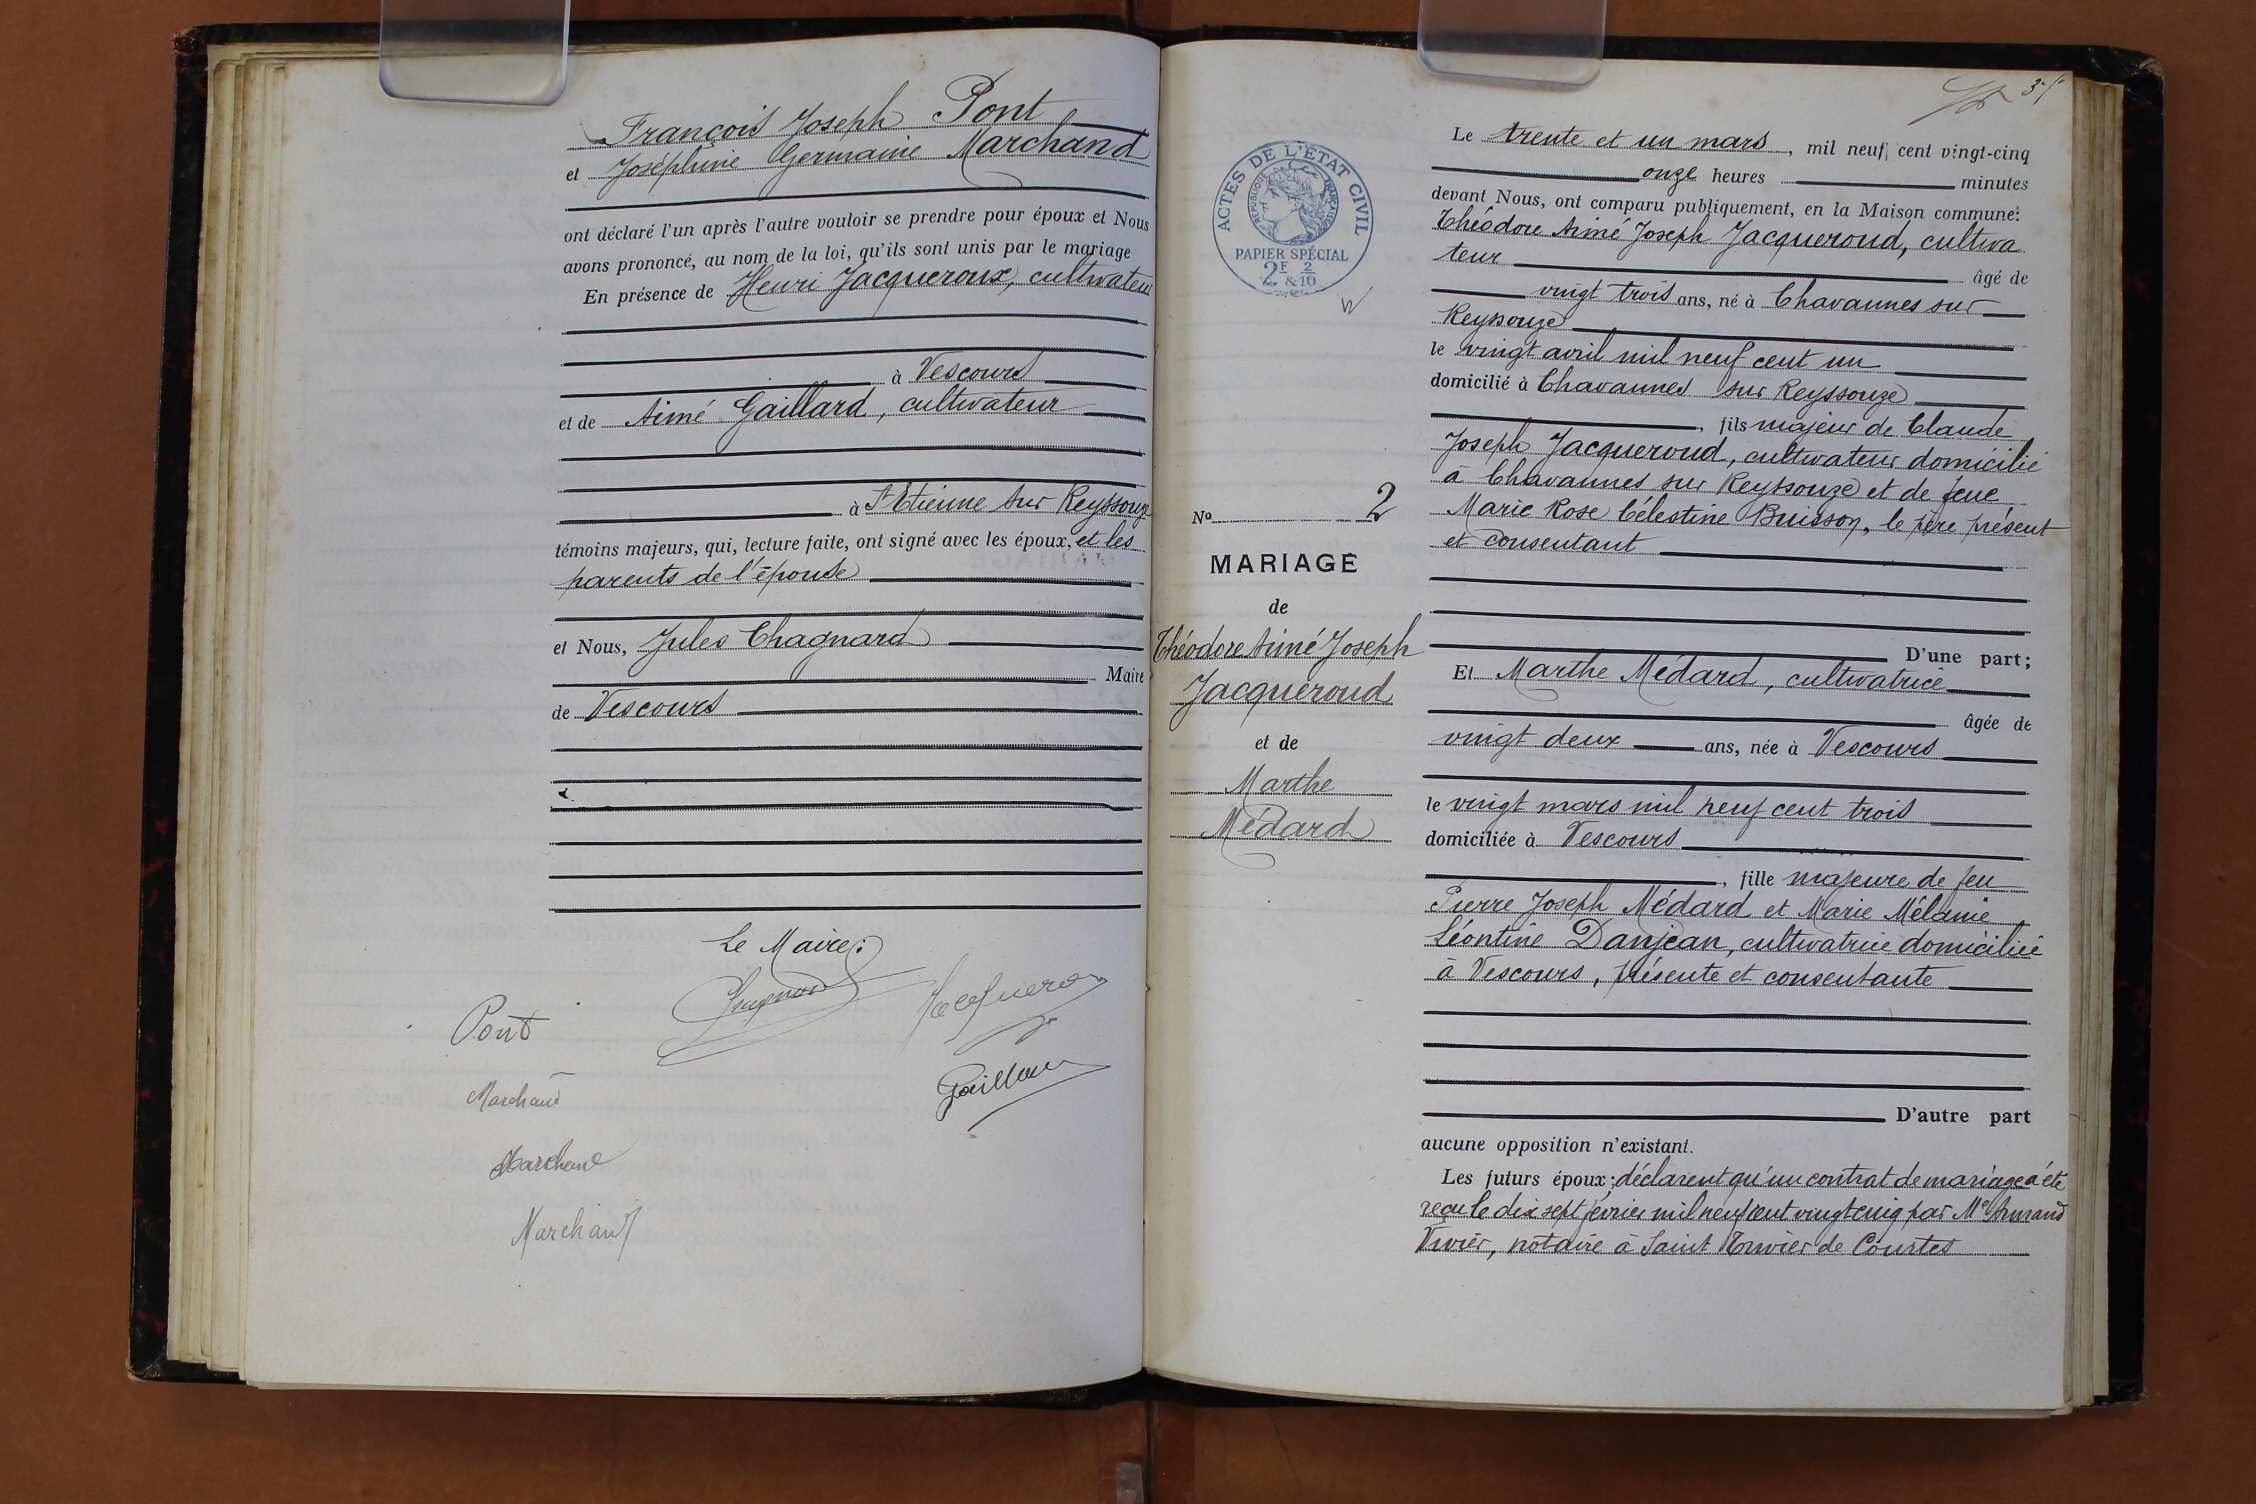 François Joseph Pont
et Joséphine Germaine Marchand
ont déclaré l'un après l'autre vouloir se prendre pour époux et Nous
avons prononcé, au nom de la loi, qu'ils sont unis par le mariage
En présence de Henri Jacqueroux, cultivateur
à Vescours
et de Aimé Gaillard, cultivateur
à St Etienne sur Reyssouze
témoins majeurs, qui, lecture faite, ont signé avec les époux, et les
parents de l'épouse
et Nous, Jules Chagnard
Maire
de Vescours
Le Maire:
Pont
Marchand
Marchand
Marchand
Le trente et un mars, mil neuf cent vingt-cinq
onze heures minutes
devant Nous, ont comparu publiquement, en la Maison commune:
Théodore Aimé Joseph Jacqueroud, cultiva
teur âgé de
vingt trois ans, né à Chavannes sur
Reyssouze
le vingt avril mil neuf cent un
domicilié à Chavannes sur Reyssouze
, fils majeur de Claude
Joseph Jacqueroud, cultivateur domicilié
à Chavannes sur Reyssouze et de feue
Marie Rose Célestine Buisson, le père présent
et consentant
D'une part;
Et Marthe Médard, cultivatrice
âgée de
vingt deux ans, née à Vescours
le vingt mars mil neuf cent trois
domiciliée à Vescours
, fille majeure de feu
Pierre Joseph Médard et Marie Mélanie
Léontine Danjean, cultivatrice domiciliée
à Vescours, présente et consentante
D'autre part
aucune opposition n'existant.
Les futurs époux; déclarent qu'un contrat de mariage a été
reçu le dix sept février mil neuf cent vingt cinq par Me Armand
Vivier, notaire à Saint Trivier de Courtes
ACTES DE L'ÉTAT CIVIL
RÉPUBLIQUE FRANÇAISE
PAPIER SPÉCIAL
2F & 2/10
No 2
MARIAGE
de
Théodore Aimé Joseph
Jacqueroud
et de
Marthe
Médard